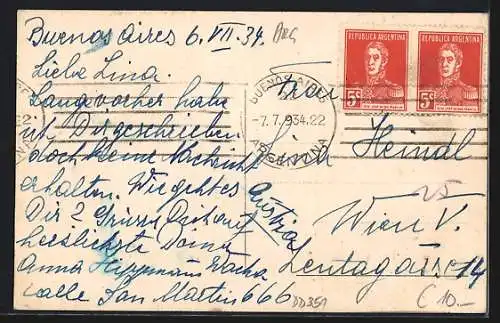 Buenos Aires 6. VII. 34.
Liebe Lina.
Lang vorher habe
ich Dir geschrieben
doch keine Antwort
erhalten. Wie geht es
Dir? Grüsse Dich auf
herzlichste Deine
Anna
Calle San Martin 666
ARG
REPUBLICA ARGENTINA
5c
REPUBLICA ARGENTINA
5c
BUENOS AIRES
-7.7.934.22
ARGENTINA
Frau
Lina Heindl
Wien V.
Zentagasse 14
Austria
25
DD351
€ 10.-